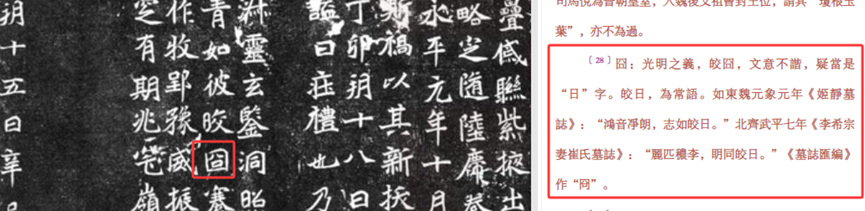 疊戚聯紫掖出
略定随陸
永平元年十月
斯禍以其新
丁卯朔十八日
謚曰莊禮也乃
靈玄鑒洞昭
青如彼皎囧
作牧郢豫威振
有期兆宅嶺
朔十五日辛
司馬悅為晉朝皇室，入魏後父祖嘗封王位，謂其“瓊根玉
葉”，亦不為過。
［28］囧：光明之義，皎囧，文意不諧，疑當是
“日”字。皎日，為常語。如東魏元象元年《姬靜墓
誌》：“鴻音凈朗，志如皎日。”北齊武平七年《李希宗
妻崔氏墓誌》：“麗匹穠李，明同皎日。”《墓誌匯編》
作“冏”。